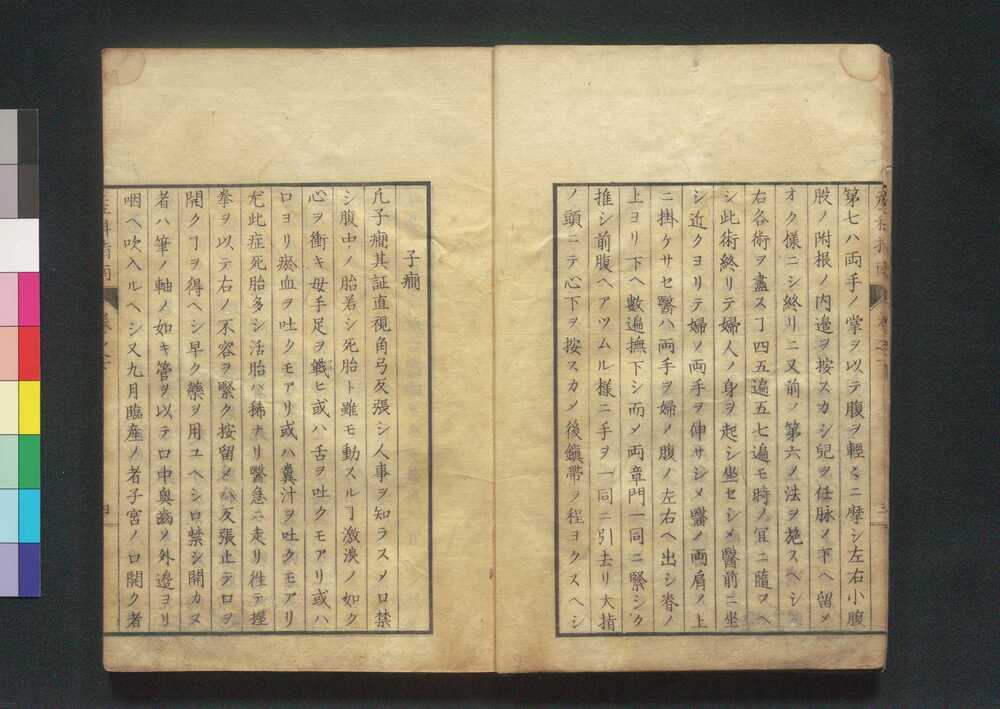 第七ハ両手ノ掌ヲ以テ腹ヲ軽〻ニ摩シ左右小腹
股ノ附根ノ内邉ヲ按スカシ兒ヲ任脉ノ下ヘ留メ
オク様ニシ終リニ又前ノ第六ノ法ヲ施スヘシ
右各術ヲ盡スヿ四五遍五七遍モ時ノ冝ニ隨フヘ
シ此術終リテ婦人ノ身ヲ起シ坐セシメ醫前ニ坐
シ近クヨリテ婦ノ両手ヲ伸サシメ醫ノ両肩ノ上
ニ掛ケサセ醫ハ両手ヲ婦ノ腹ノ左右ヘ出シ脊ノ
上ヨリ下ヘ數遍撫下シ而メ両章門一同ニ緊シク
推シ前腹ヘアツムル様ニ手ヲ一同ニ引去リ大指
ノ頭ニテ心下ヲ按スカメ後鎮帯ヲ程ヨクスヘシ
子癇
凢子癇其証直視角弓反張シ人事ヲ知ラスメ口禁
シ腹中ノ胎若シ死胎ト雖モ動スルヿ激浪ノ如ク
心ヲ衝キ母手足ヲ戦ヒ或ハ舌ヲ吐クモアリ或ハ
口ヨリ瘀血ヲ吐クモアリ或ハ糞汁ヲ吐クモアリ
尤此症死胎多シ活胎ハ稀ナリ醫急ニ走リ徃テ握
拳ヲ以テ右ノ不容ヲ緊ク按留メハ反張止テ口ヲ
開クヿヲ得ヘシ早ク藥ヲ用ユヘシ口禁シ開カヌ
者ハ筆ノ軸ノ如キ管ヲ以テ口中奥齒ノ外邉ヨリ
咽ヘ吹入ルヘシ又九月臨産ノ者子宮ノ口開ク者